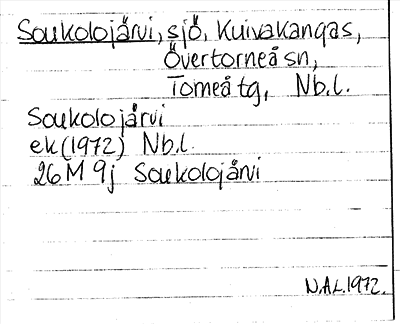 Soukolojärvi, sjö, Kuivakangas,
Övertorneå sn,
Torneå tg, Nb.l.
Soukolojärvi
ek(1972) Nb.l.
26 M 9j Soukolojärvi
N.A.L.1972.